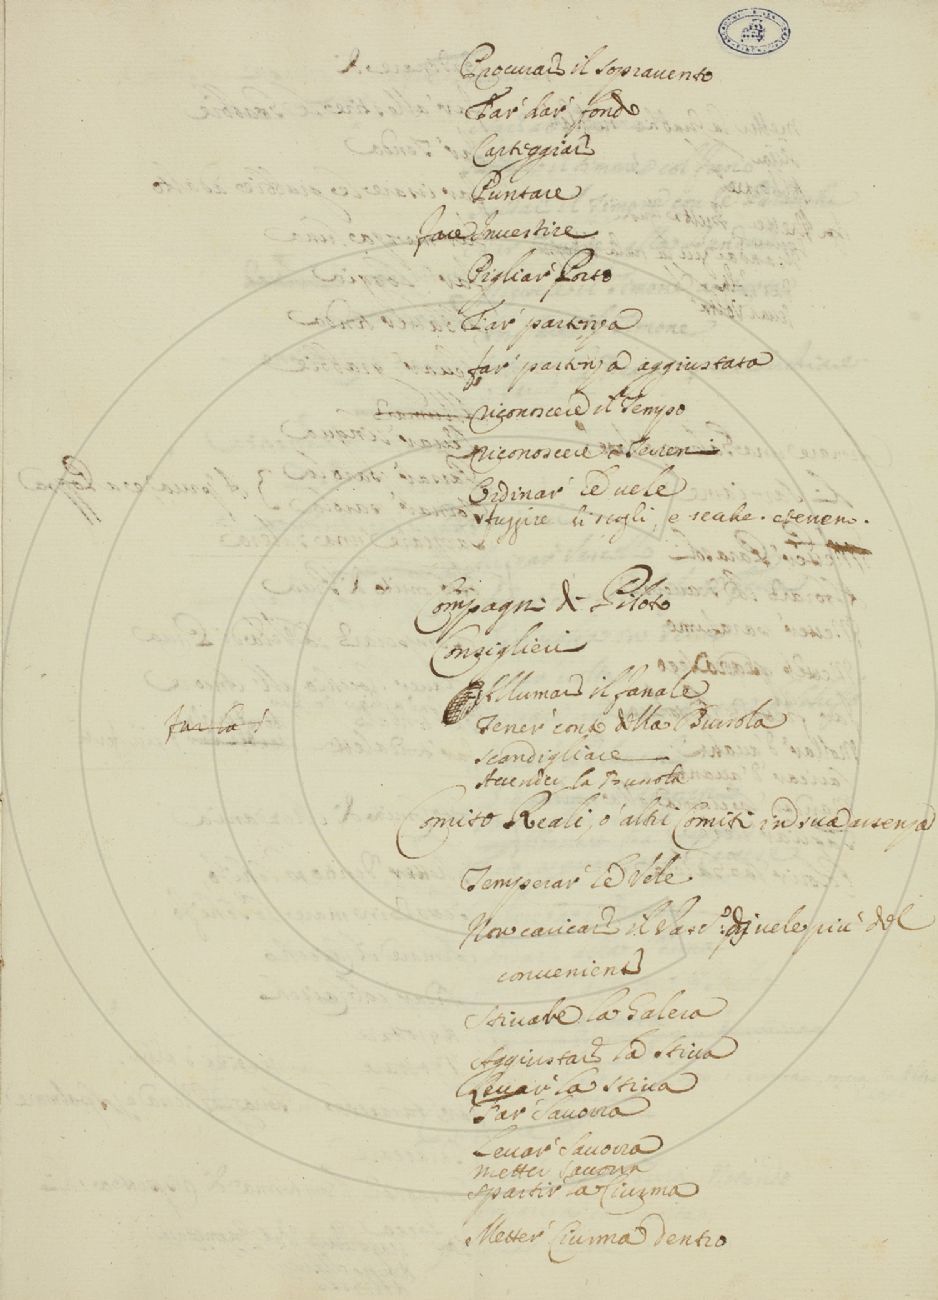 Procurare il sopravento
Far dar fondo
Carteggiare
Puntare
fare Investire
Pigliar Porto
Far partenza
far partenza aggiustata
riconoscere il Tempo
riconoscere Terreni
Ordinar le vele
fuggire li scogli, e secche . e terreni .
Compagni di Piloto
Consiglieri
Illumare il fanale
Tener cona della Bussola
scandigliare
Attender la Bussola
far la
Comito Reali, o' altri Comiti in sua assenza
Temperar le Vele
Non caricare il Vasc.o di vele piu del
conveniente
Stivare la Galera
Aggiustare la Stiva
Levar la Stiva
Far Savorra
Levar Savorra
Metter Savorra
Spartir la Ciurma
Metter Ciurma dentro